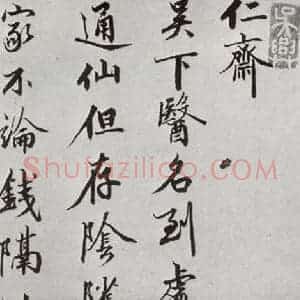 仁齋
吳下醫名到處
通仙但存陰隲
家不論錢隔
Shufaziliao.com